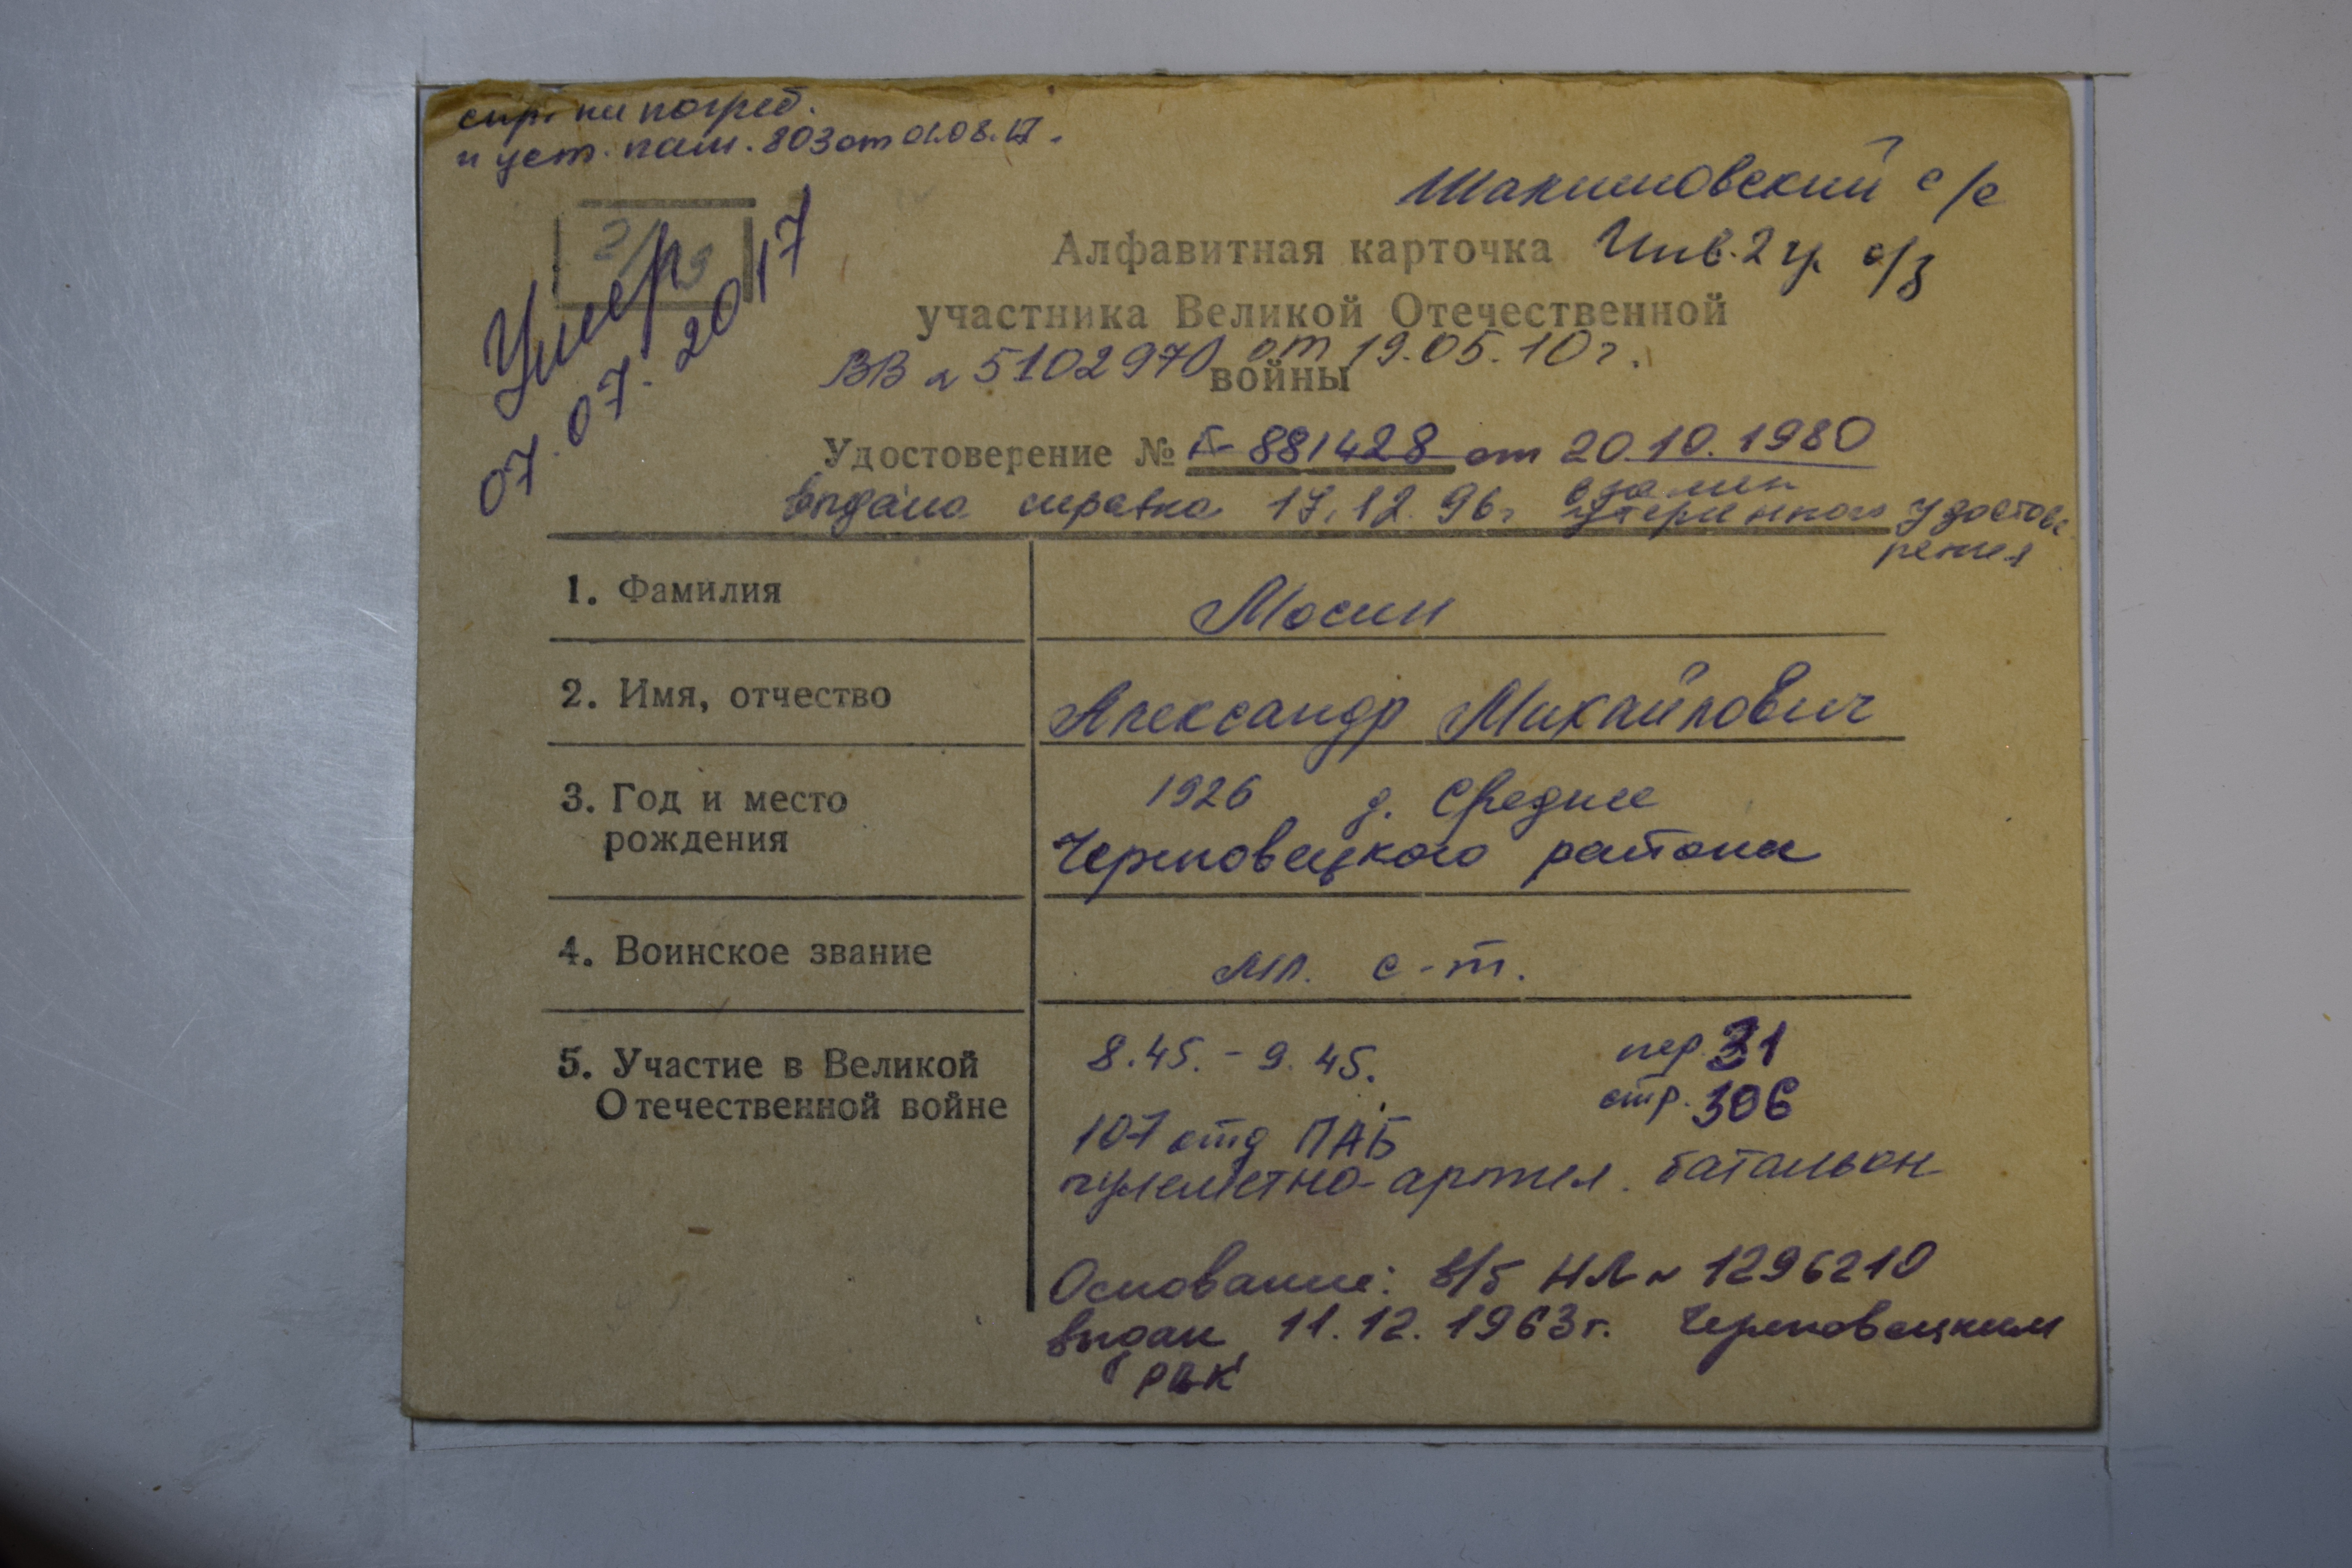 спр. на погреб.
и уст. пам. 803 от 01.08.17.
Шалимовский с/с
Умер
07.07.2017
Алфавитная карточка Инв. 2 гр. о/з
участника Великой Отечественной
ВВ № 5102970 от 19.05.10 г.
войны
Удостоверение № Г-881428 от 20.10.1980
выдана справка 17.12.96г взамен
утерянного удостове
рения
1. Фамилия Мосин
2. Имя, отчество Александр Михайлович
3. Год и место 1926 д. Среднее
рождения Череповецкого района
4. Воинское звание мл. с-т.
5. Участие в Великой 8.45. - 9.45. пер. 31
Отечественной войне стр. 306
107 отд ПАБ
пулеметно-артил. батальон
Основание: в/б НЛ № 1296210
выдан 11.12.1963г. Череповецким
РВК